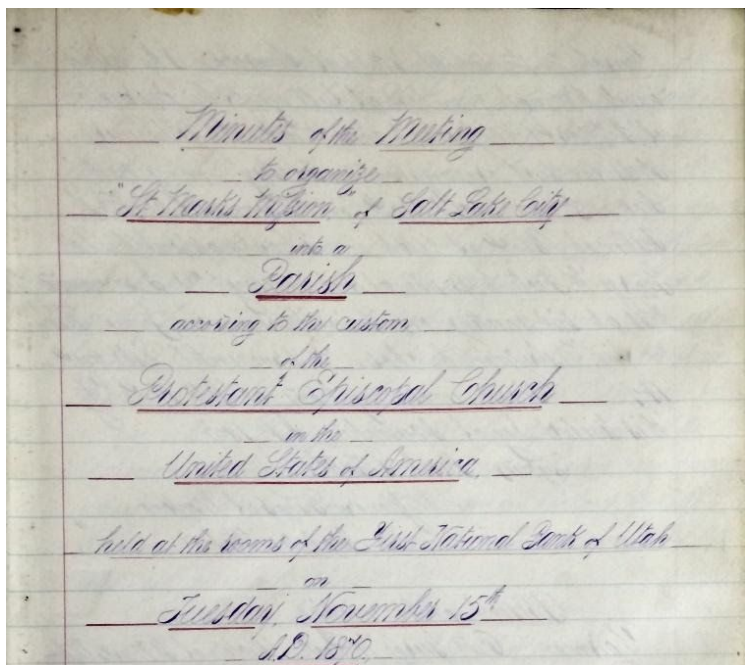 Minutes of the Meeting
to organize
"St Marks Mission" of Salt Lake City
into a
Parish
according to the custom
of the
Protestant Episcopal Church
in the
United States of America
held at the rooms of the First National Bank of Utah
on
Tuesday, November 15th
A.D. 1870